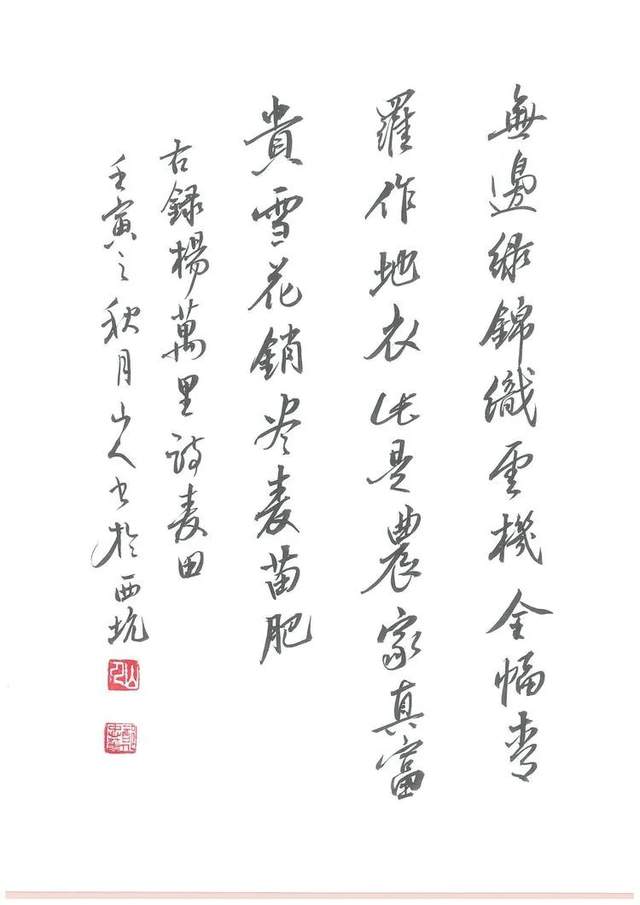 無邊綠錦織雲機全幅青
羅作地衣此是農家真富
貴雪花銷盡麦苗肥
右録楊萬里詩麦田
壬寅之秋月山人书於西坑
山人